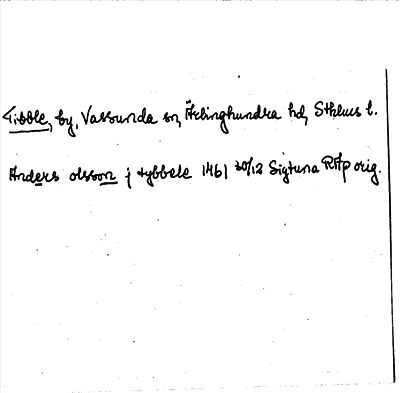 Tibble, by, Vassunda sn, Ärlinghundra hd, Sthlms l.
Anders olsson j tybbele 1461 30/12 Sigtuna RAp orig.